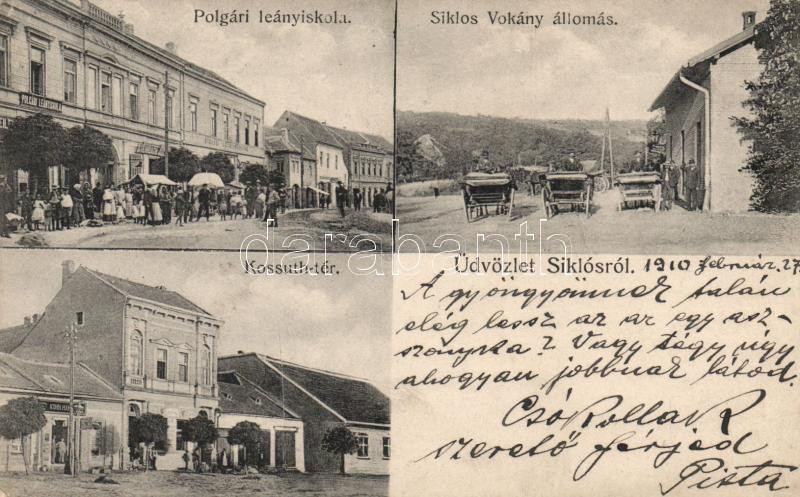 Polgári leányiskola.
Siklos Vokány állomás.
POLGÁRI LEÁNYISKOLA
Kossuth-tér.
Üdvözlet Siklósról. 1910 február. 27
darabanth.com
A gyöngyömnek talán
elég lessz az az egy asz-
szonyka? Vagy tégy úgy
ahogyan jobbnak látod.
Csókollak
szerető férjed
Pista